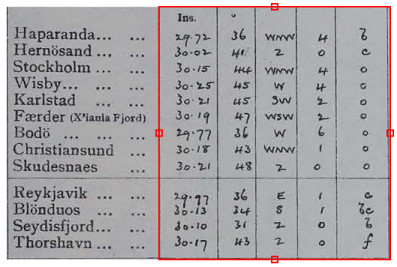 Ins. °
Haparanda... ... 29.72 36 WNW 4 b
Hernösand ... ... 30.02 41 Z 0 c
Stockholm ... ... 30.15 44 WNW 4 0
Wisby... ... ... 30.25 45 W 4 0
Karlstad ... ... 30.21 45 SW 2 0
Færder (X'iania Fjord) 30.19 47 WSW 2 0
Bodö ... ... ... 29.77 36 W 6 0
Christiansund ... 30.18 43 WNW 1 0
Skudesnaes ... 30.21 48 Z 0 0
Reykjavik ... ... 29.97 36 E 1 c
Blönduos ... ... 30.13 34 S 1 bc
Seydisfjord... ... 30.10 31 Z 0 b
Thorshavn ... ... 30.17 43 Z 0 f